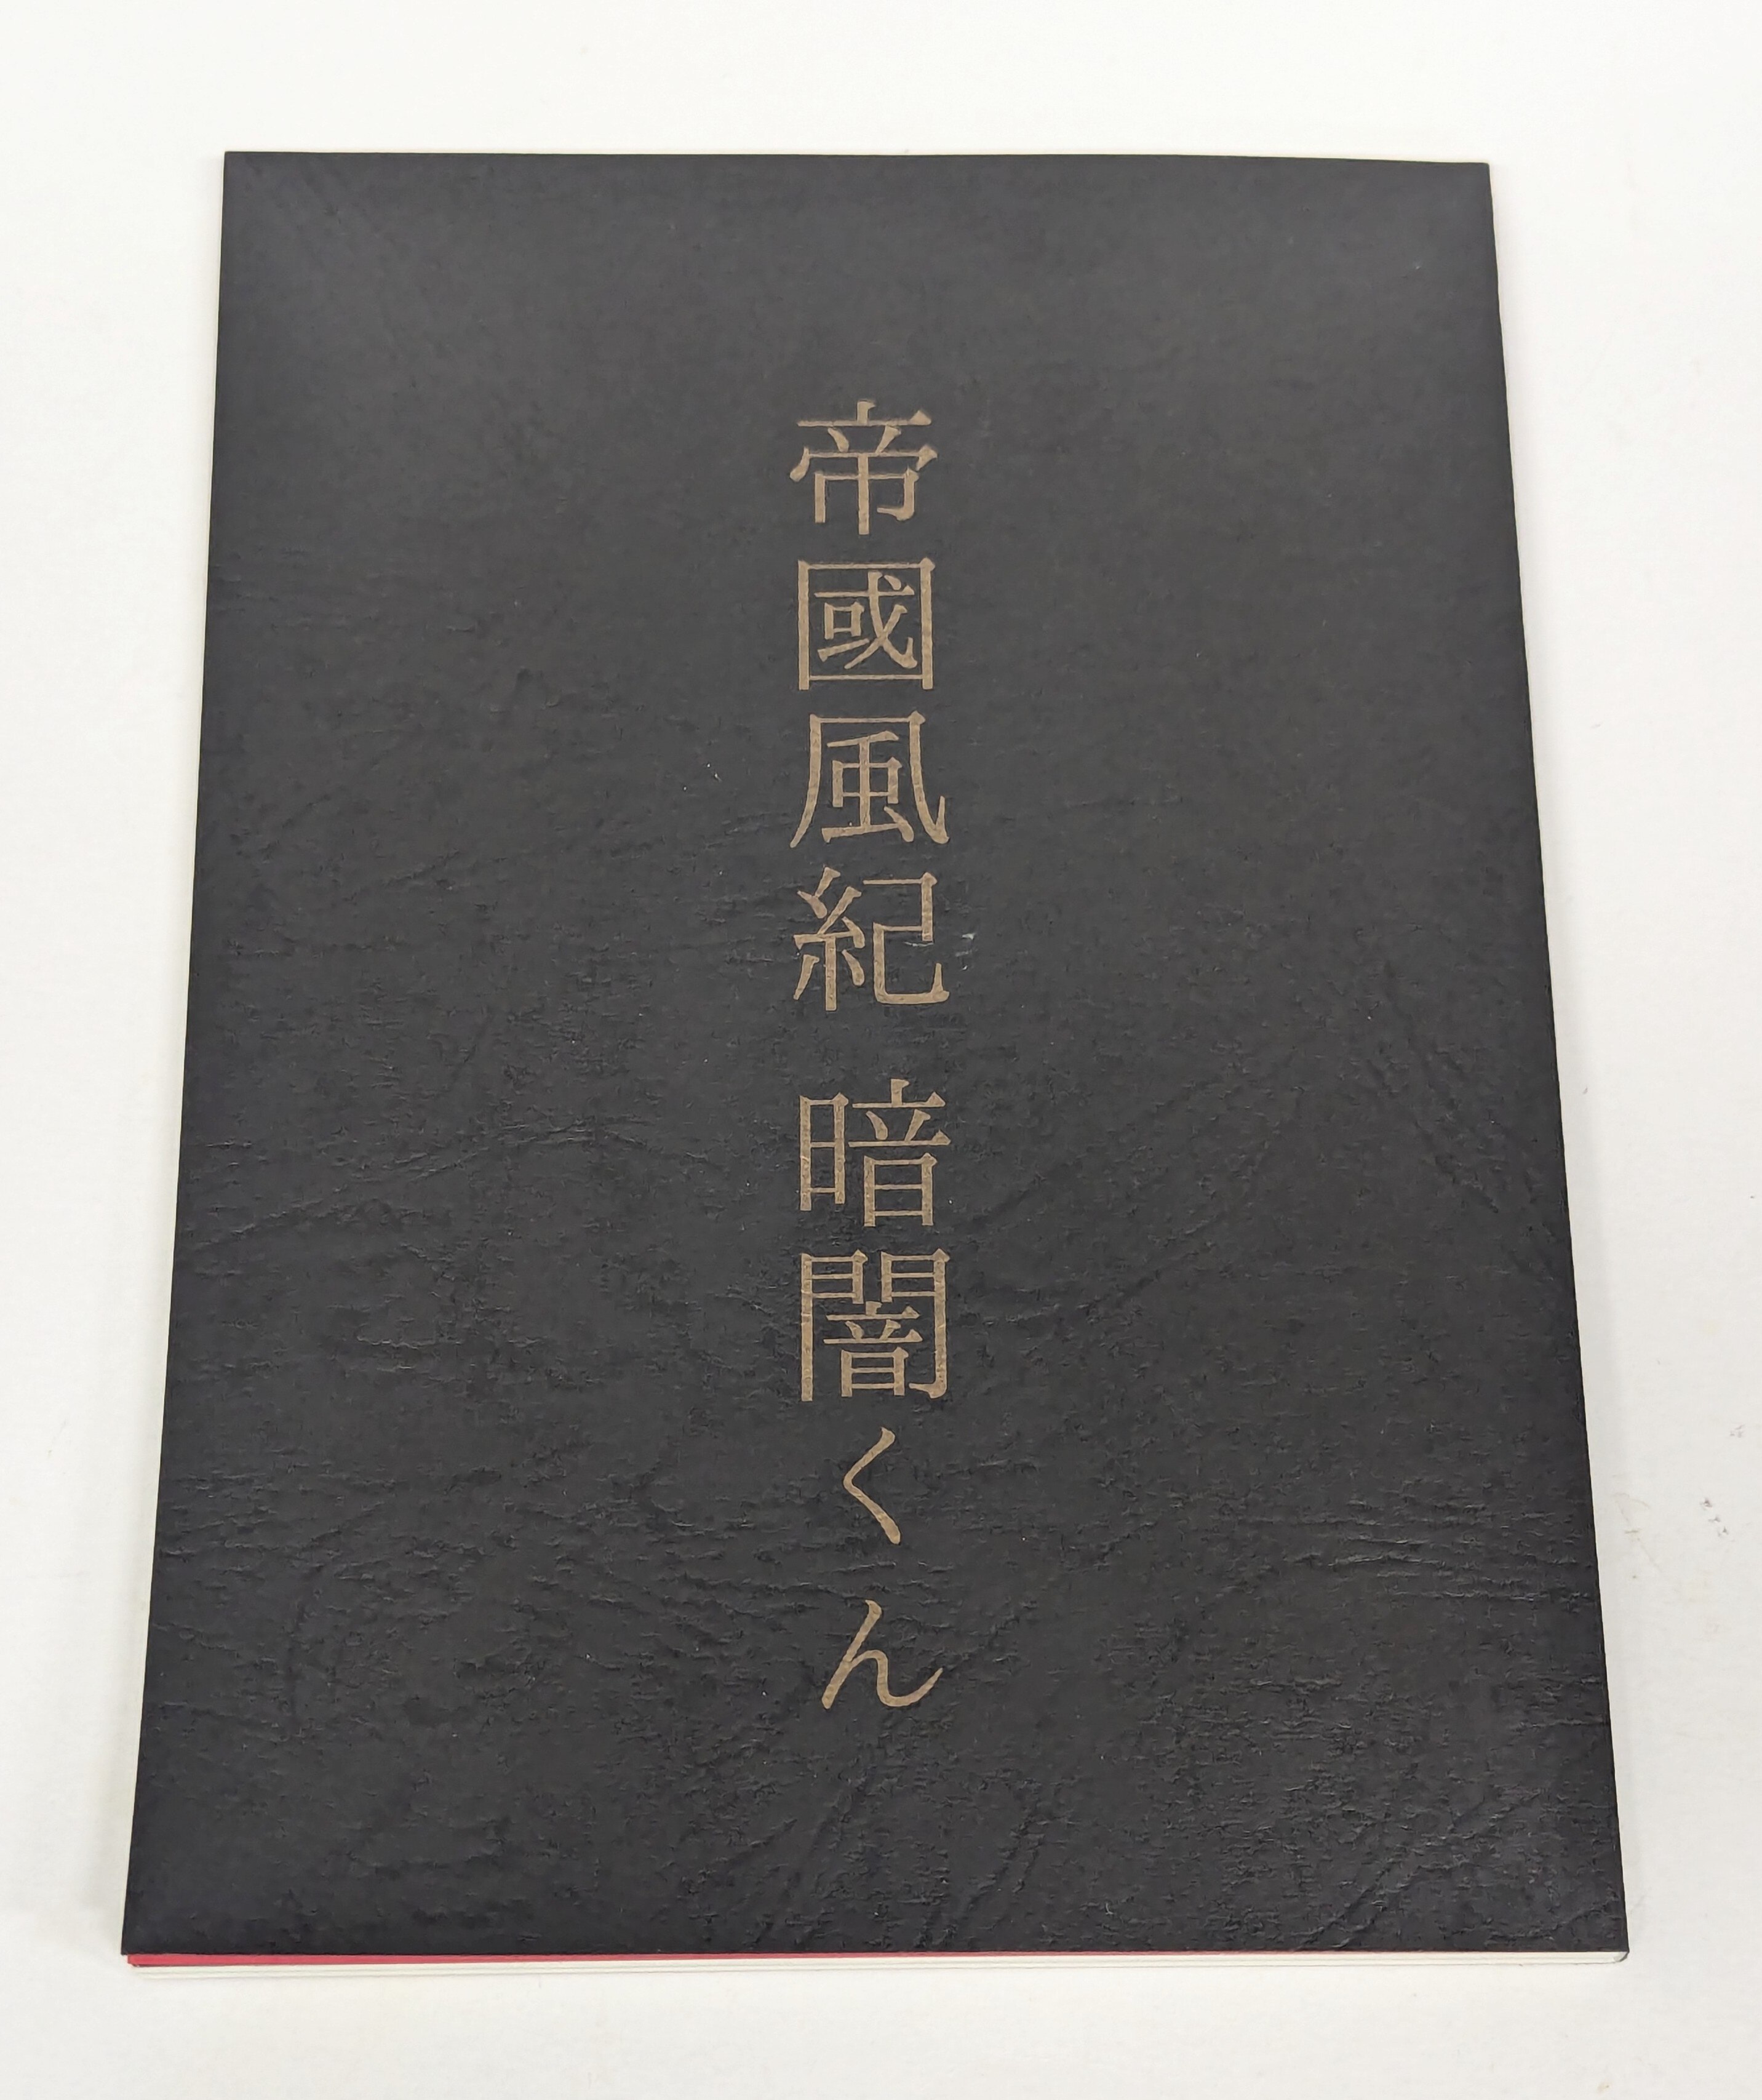 帝國風紀 暗闇くん